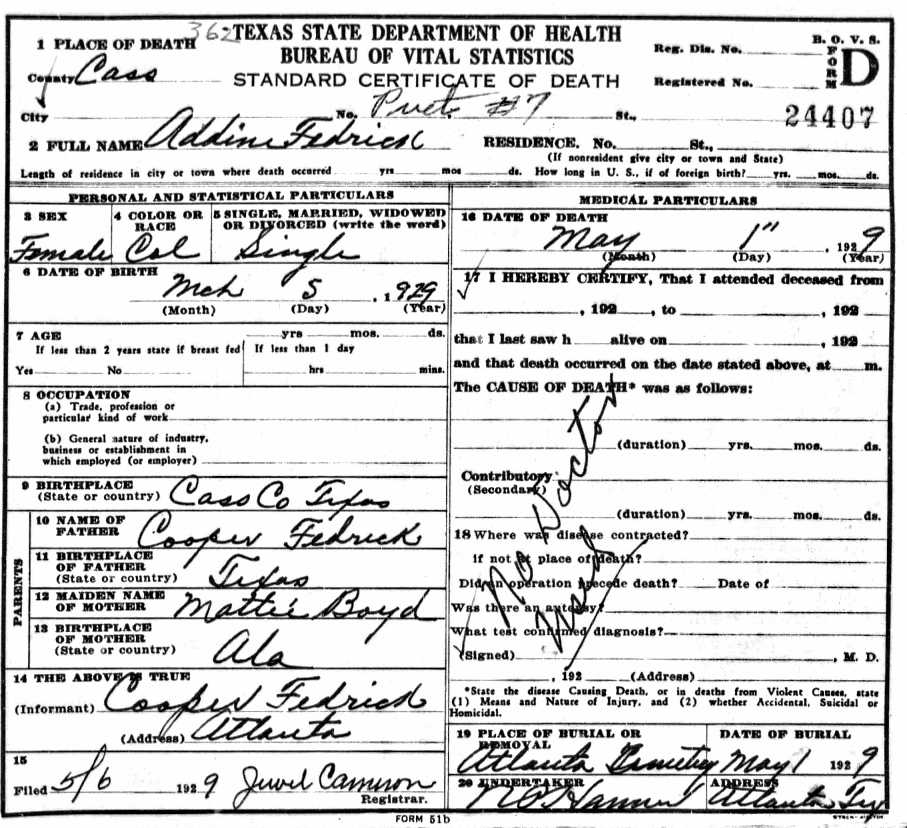 362 TEXAS STATE DEPARTMENT OF HEALTH
BUREAU OF VITAL STATISTICS
STANDARD CERTIFICATE OF DEATH
B. O. V. S.
FORM D
Reg. Dis. No.
Registered No.
24407
1 PLACE OF DEATH
County Cass
City No. Prect. #7 St.,
2 FULL NAME Addine Fedrick RESIDENCE. No. St.,
(If nonresident give city or town and State)
Length of residence in city or town where death occurred yrs mos ds. How long in U. S., if of foreign birth? yrs. mos. ds.
PERSONAL AND STATISTICAL PARTICULARS
3 SEX 4 COLOR OR RACE 5 SINGLE, MARRIED, WIDOWED OR DIVORCED (write the word)
Female Col Single
6 DATE OF BIRTH
Mch 5, 1929
(Month) (Day) (Year)
7 AGE yrs mos. ds.
If less than 2 years state if breast fed If less than 1 day
Yes No hrs mins.
8 OCCUPATION
(a) Trade, profession or
particular kind of work
(b) General nature of industry,
business or establishment in
which employed (or employer)
9 BIRTHPLACE
(State or country) Cass Co Texas
PARENTS
10 NAME OF
FATHER Cooper Fedrick
11 BIRTHPLACE
OF FATHER
(State or country) Texas
12 MAIDEN NAME
OF MOTHER Mattie Boyd
13 BIRTHPLACE
OF MOTHER
(State or country) Ala
14 THE ABOVE IS TRUE
(Informant) Cooper Fedrick
(Address) Atlanta
15
Filed 5/6 1929 Juvel Cameron
Registrar.
MEDICAL PARTICULARS
16 DATE OF DEATH
May 1", 1929
(Month) (Day) (Year)
17 I HEREBY CERTIFY, That I attended deceased from
, 192 , to , 192
that I last saw h alive on , 192
and that death occurred on the date stated above, at m.
The CAUSE OF DEATH* was as follows:
No Doctor
(duration) yrs. mos. ds.
Contributory
(Secondary)
(duration) yrs. mos. ds.
18 Where was disease contracted?
if not at place of death?
Did an operation precede death? Date of
Was there an autopsy?
What test confirmed diagnosis?
(Signed) , M. D.
, 192 (Address)
*State the disease Causing Death, or in deaths from Violent Causes, state
(1) Means and Nature of Injury, and (2) whether Accidental, Suicidal or
Homicidal.
19 PLACE OF BURIAL OR REMOVAL DATE OF BURIAL
Atlanta Cemetery May 1 1929
20 UNDERTAKER ADDRESS
Atlanta Tex
FORM 51b